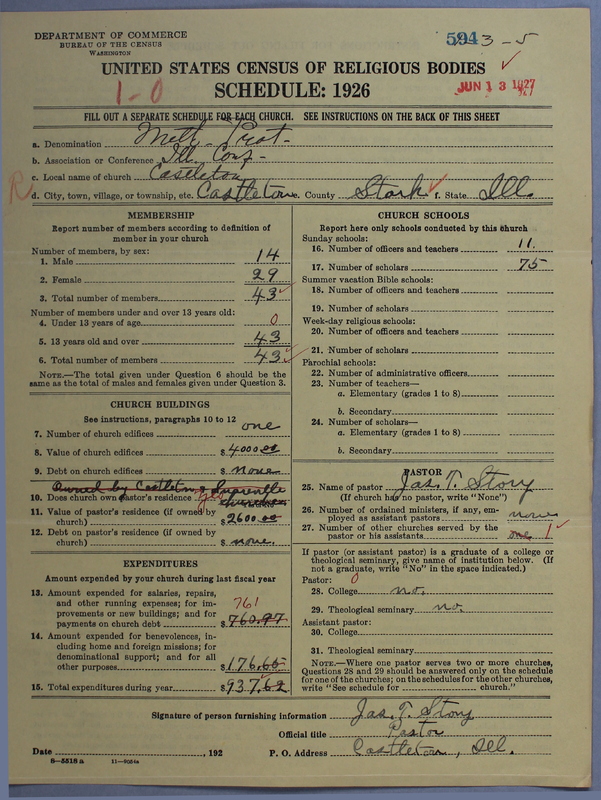 DEPARTMENT OF COMMERCE
BUREAU OF THE CENSUS
WASHINGTON
5943-5
UNITED STATES CENSUS OF RELIGIOUS BODIES
1-0
SCHEDULE: 1926
JUN 13 1927
FILL OUT A SEPARATE SCHEDULE FOR EACH CHURCH. SEE INSTRUCTIONS ON THE BACK OF THIS SHEET
a. Denomination Meth. Prot.
b. Association or Conference Ill. Conf.
c. Local name of church Castleton
R d. City, town, village, or township, etc. Castleton e. County Stark f. State Ill.
MEMBERSHIP
Report number of members according to definition of
member in your church
Number of members, by sex:
1. Male 14
2. Female 29
3. Total number of members 43
Number of members under and over 13 years old:
4. Under 13 years of age 0
5. 13 years old and over 43
6. Total number of members 43
NOTE.—The total given under Question 6 should be the
same as the total of males and females given under Question 3.
CHURCH BUILDINGS
See instructions, paragraphs 10 to 12
7. Number of church edifices one
8. Value of church edifices $ 4000.00
9. Debt on church edifices $ none
Owned by Castleton &
10. Does church own pastor's residence yes
11. Value of pastor's residence (if owned by
church) $ 2600.00
12. Debt on pastor's residence (if owned by
church) $ none.
EXPENDITURES
Amount expended by your church during last fiscal year
13. Amount expended for salaries, repairs,
and other running expenses; for im-
provements or new buildings; and for
payments on church debt $ 760.97 761
14. Amount expended for benevolences, in-
cluding home and foreign missions; for
denominational support; and for all
other purposes $ 176.65
15. Total expenditures during year $ 937.62
CHURCH SCHOOLS
Report here only schools conducted by this church
Sunday schools:
16. Number of officers and teachers 11.
17. Number of scholars 75
Summer vacation Bible schools:
18. Number of officers and teachers
19. Number of scholars
Week-day religious schools:
20. Number of officers and teachers
21. Number of scholars
Parochial schools:
22. Number of administrative officers
23. Number of teachers—
a. Elementary (grades 1 to 8)
b. Secondary
24. Number of scholars—
a. Elementary (grades 1 to 8)
b. Secondary
PASTOR
25. Name of pastor Jas. T. Story
(If church has no pastor, write "None")
26. Number of ordained ministers, if any, em-
ployed as assistant pastors none
27. Number of other churches served by the
pastor or his assistants one 1
If pastor (or assistant pastor) is a graduate of a college or
theological seminary, give name of institution below. (If
not a graduate, write "No" in the space indicated.)
Pastor: 0
28. College no.
29. Theological seminary no.
Assistant pastor:
30. College
31. Theological seminary
NOTE.—Where one pastor serves two or more churches,
Questions 28 and 29 should be answered only on the schedule
for one of the churches; on the schedules for the other churches,
write "See schedule for church."
Signature of person furnishing information Jas. T. Story
Official title Pastor
Date , 192 P. O. Address Castleton, Ill.
8—5518 a 11—9054a